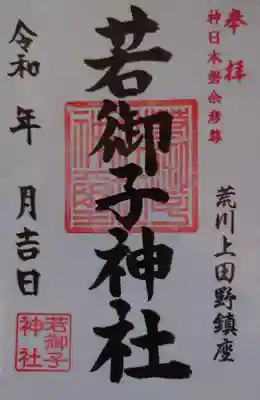 奉拝
神日本磐余彦尊
若御子神社
荒川上田野鎮座
令和 年 月吉日
若御子
神社